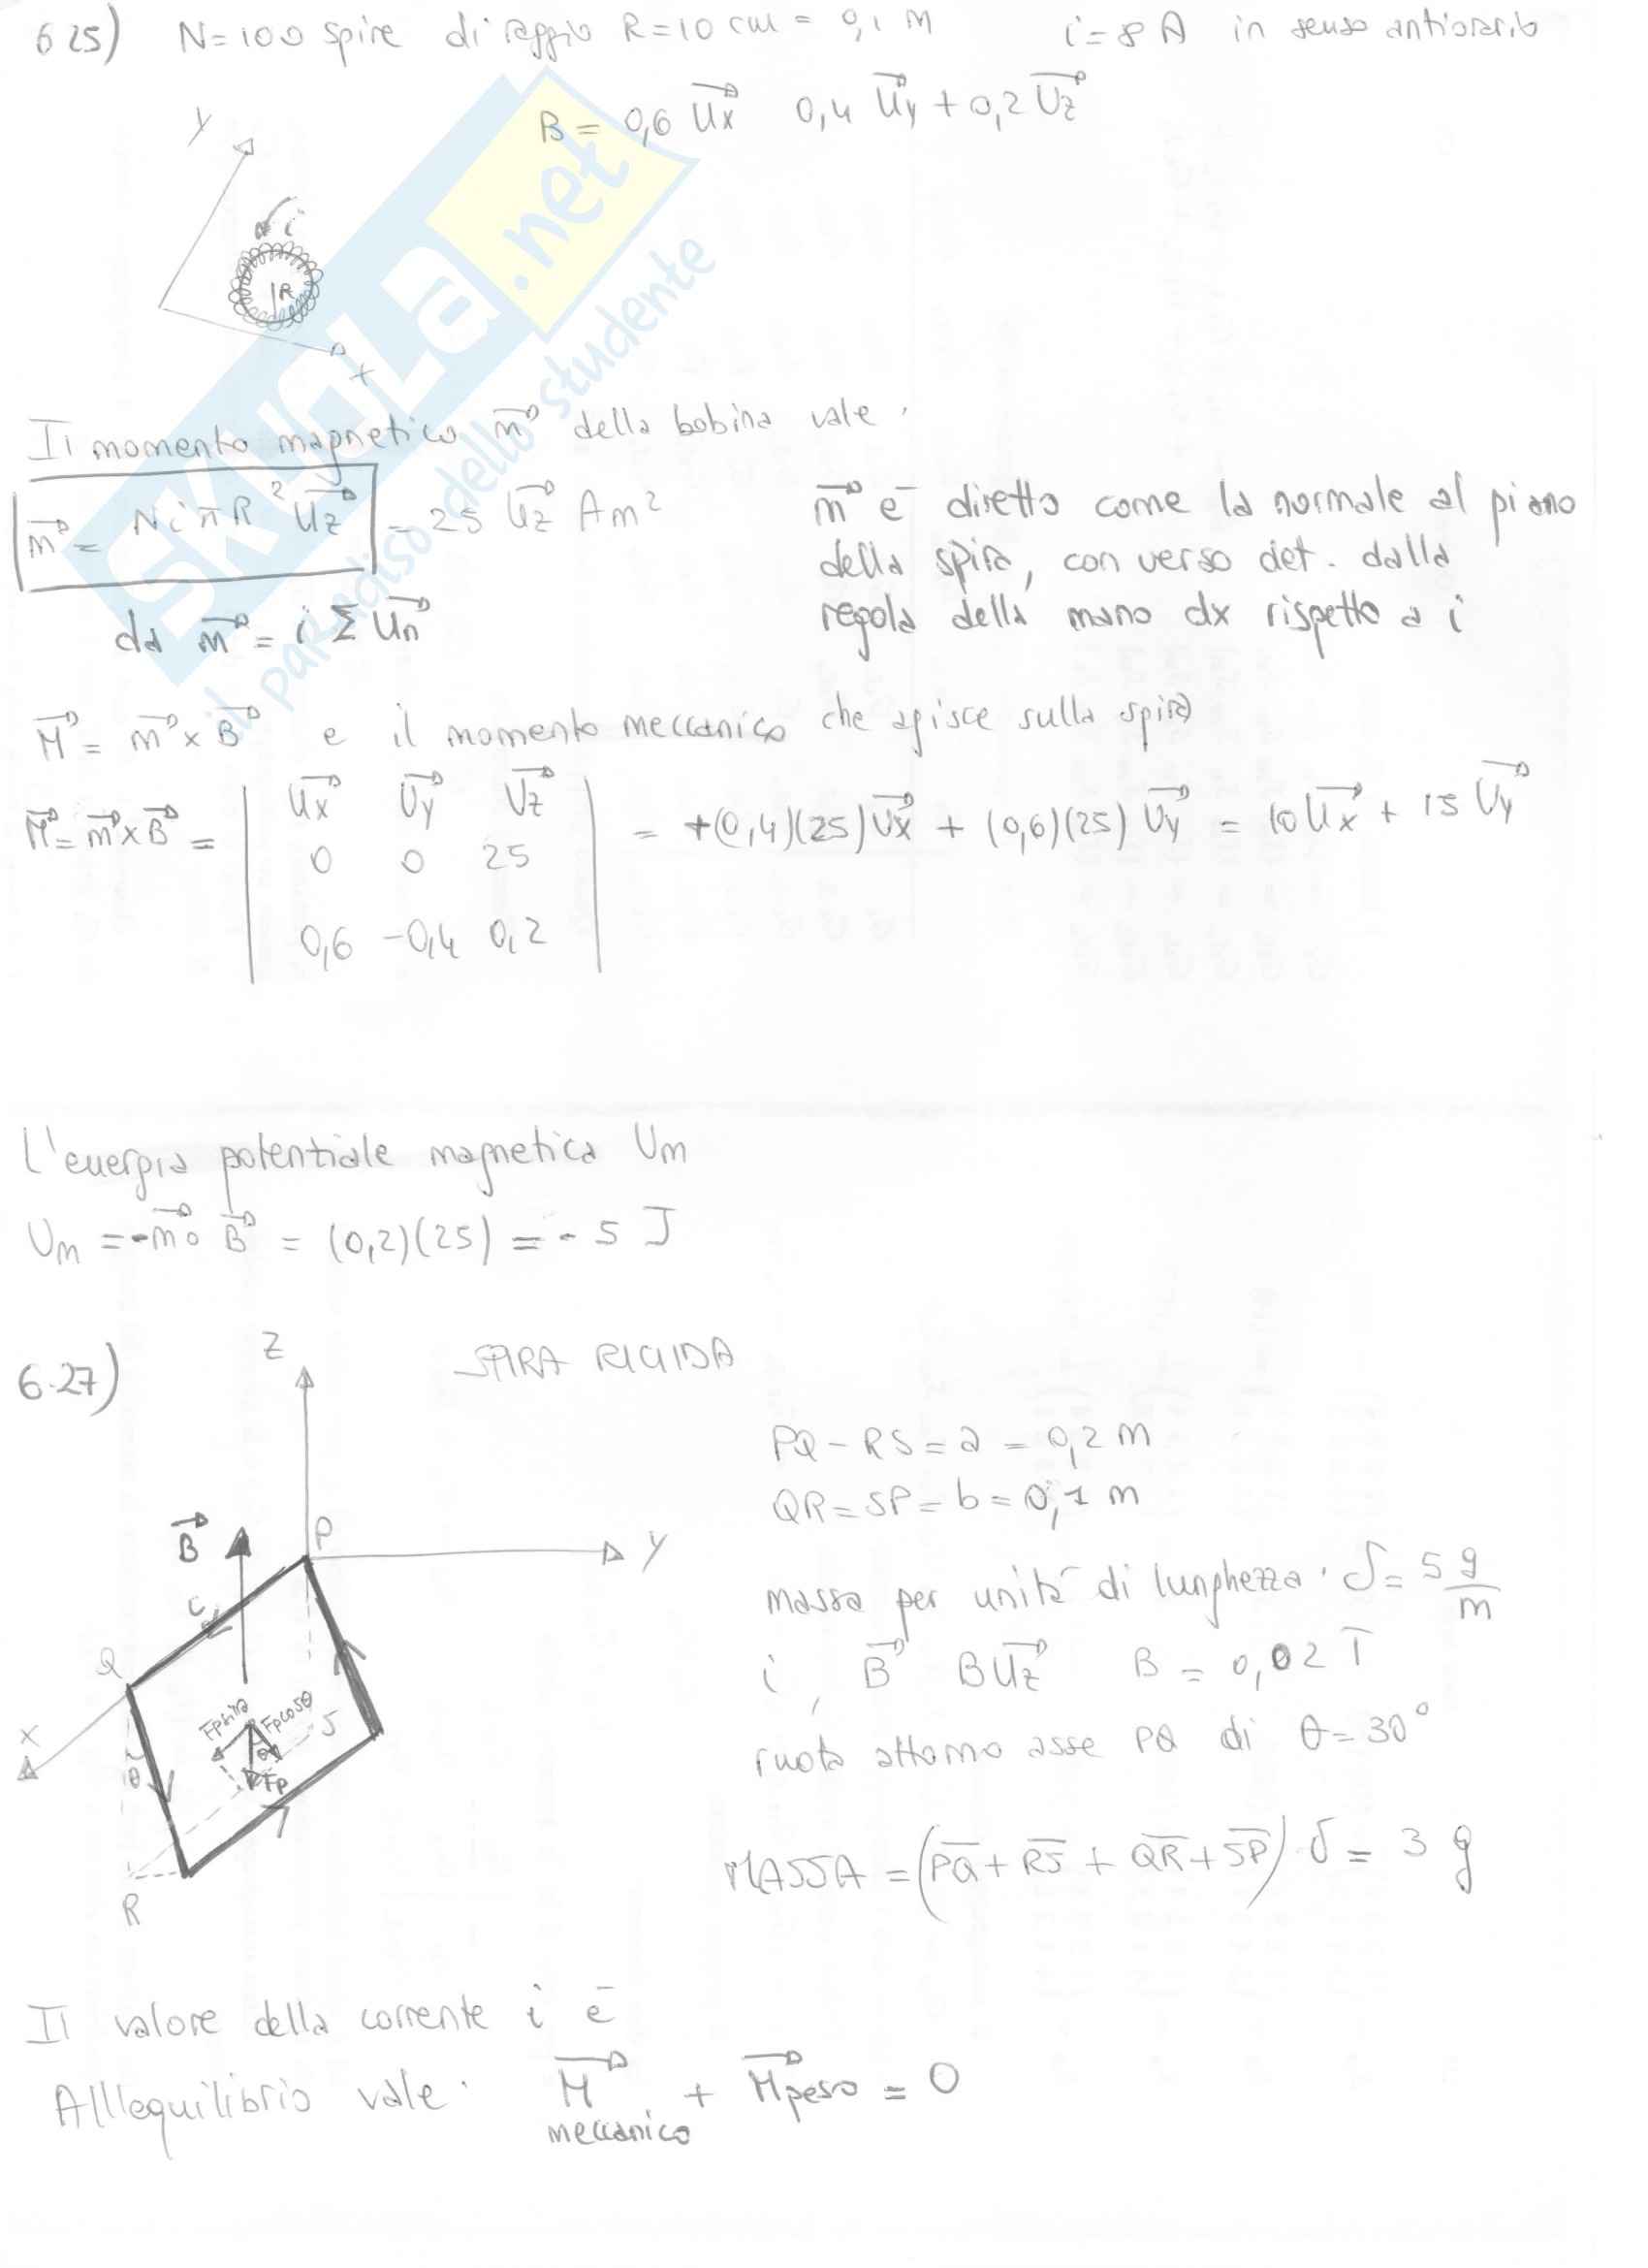 6 25) N=100 spire di raggio R=10 cm = 0,1 m i=8 A in senso antiorario
B = 0,6 Ux 0,4 Uy + 0,2 Uz
y
i
R
x
SKUOLA.net
il paradiso dello studente
Il momento magnetico m della bobina vale.
m = N i π R² Uz = 25 Uz A m²
m è diretto come la normale al piano
della spira, con verso det. dalla
regola della mano dx rispetto a i
da m = i Σ Un
M = m × B e il momento meccanico che agisce sulla spira
M = m × B = | Ux Uy Uz | = +(0,4)(25) Ux + (0,6)(25) Uy = 10 Ux + 15 Uy
0 0 25
0,6 -0,4 0,2
L'energia potenziale magnetica Um
Um = -m ∘ B = (0,2)(25) = - 5 J
6.27) SPIRA RIGIDA
z
PQ - RS = a = 0,2 m
QR = SP = b = 0,1 m
B
P
y
massa per unità di lunghezza. δ = 5 g/m
i, B BUz B = 0,02 T
Q
x
Fp cosθ
S
θ
Fp
θ
R
ruota attorno asse PQ di θ = 30°
MASSA = (PQ + RS + QR + SP) · δ = 3 g
Il valore della corrente i è
All'equilibrio vale. M meccanico + M peso = 0